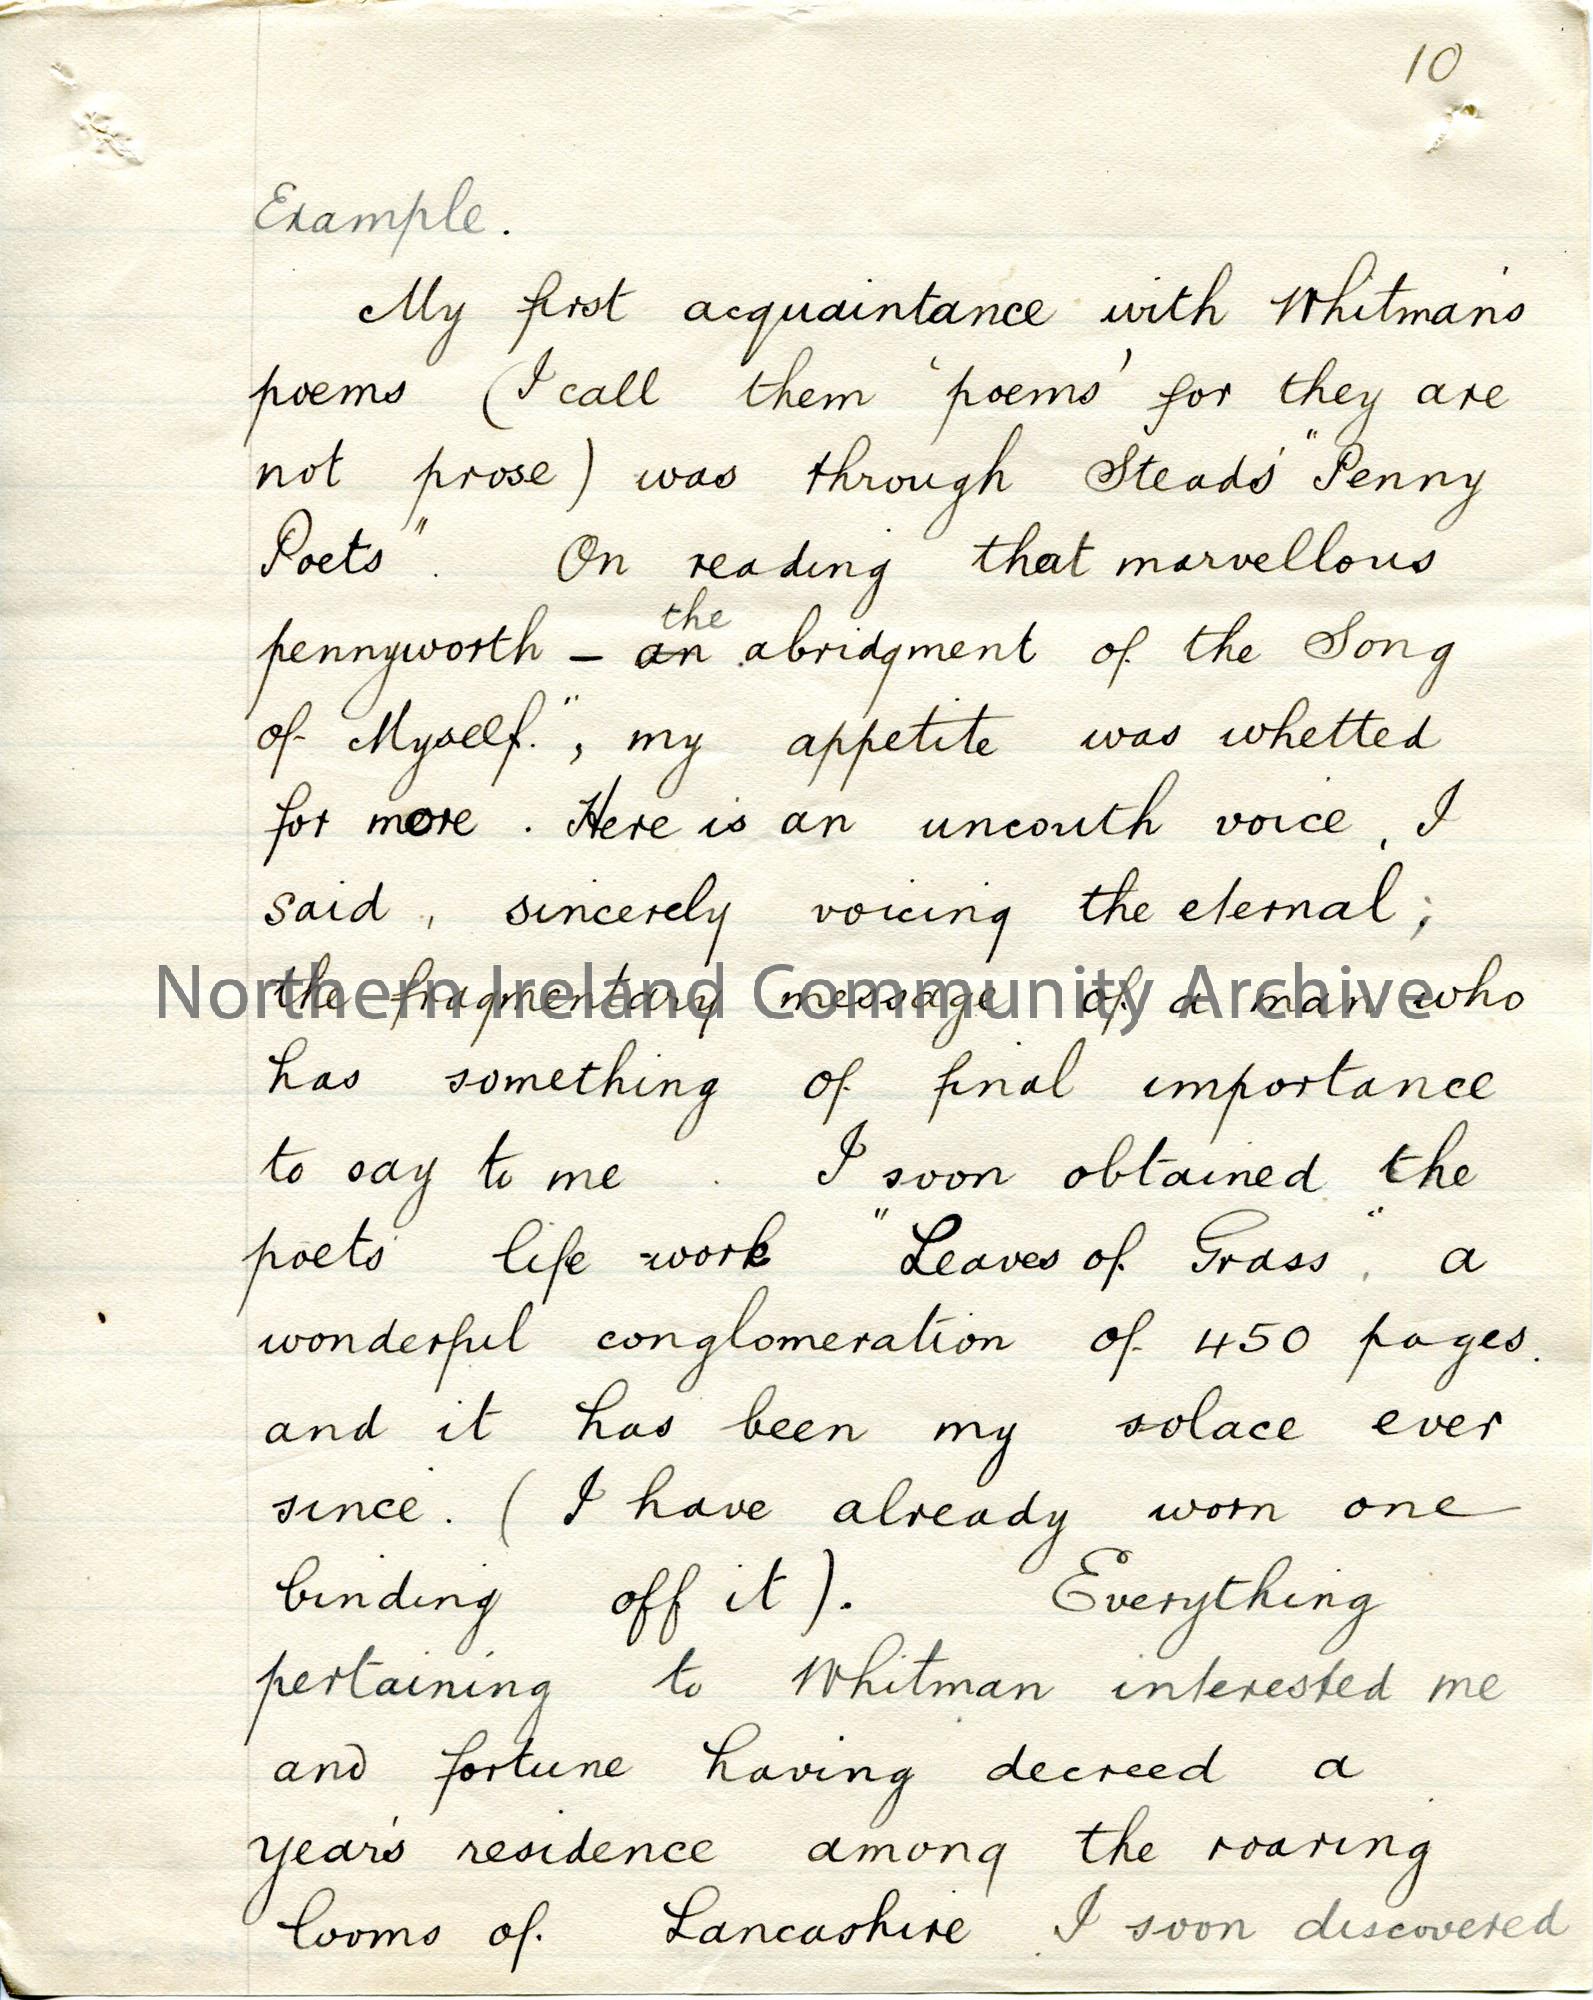 10
Example.
My first acquaintance with Whitman's
poems (I call them 'poems' for they are
not prose) was through Stead's "Penny
Poets". On reading that marvellous
the
pennyworth – an abridgment of the Song
of Myself.", my appetite was whetted
for more. Here is an uncouth voice, I
said, sincerely voicing the eternal;
the fragmentary message of a man who
Northern Ireland Community Archive
has something of final importance
to say to me. I soon obtained the
poets' life work "Leaves of Grass", a
wonderful conglomeration of 450 pages.
and it has been my solace ever
since. (I have already worn one
binding off it). Everything
pertaining to Whitman interested me
and fortune having decreed a
year's residence among the roaring
looms of Lancashire I soon discovered